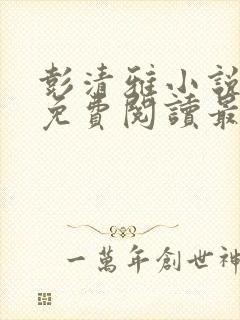 彭清雅小說
免費閱讀最
一萬年創世神